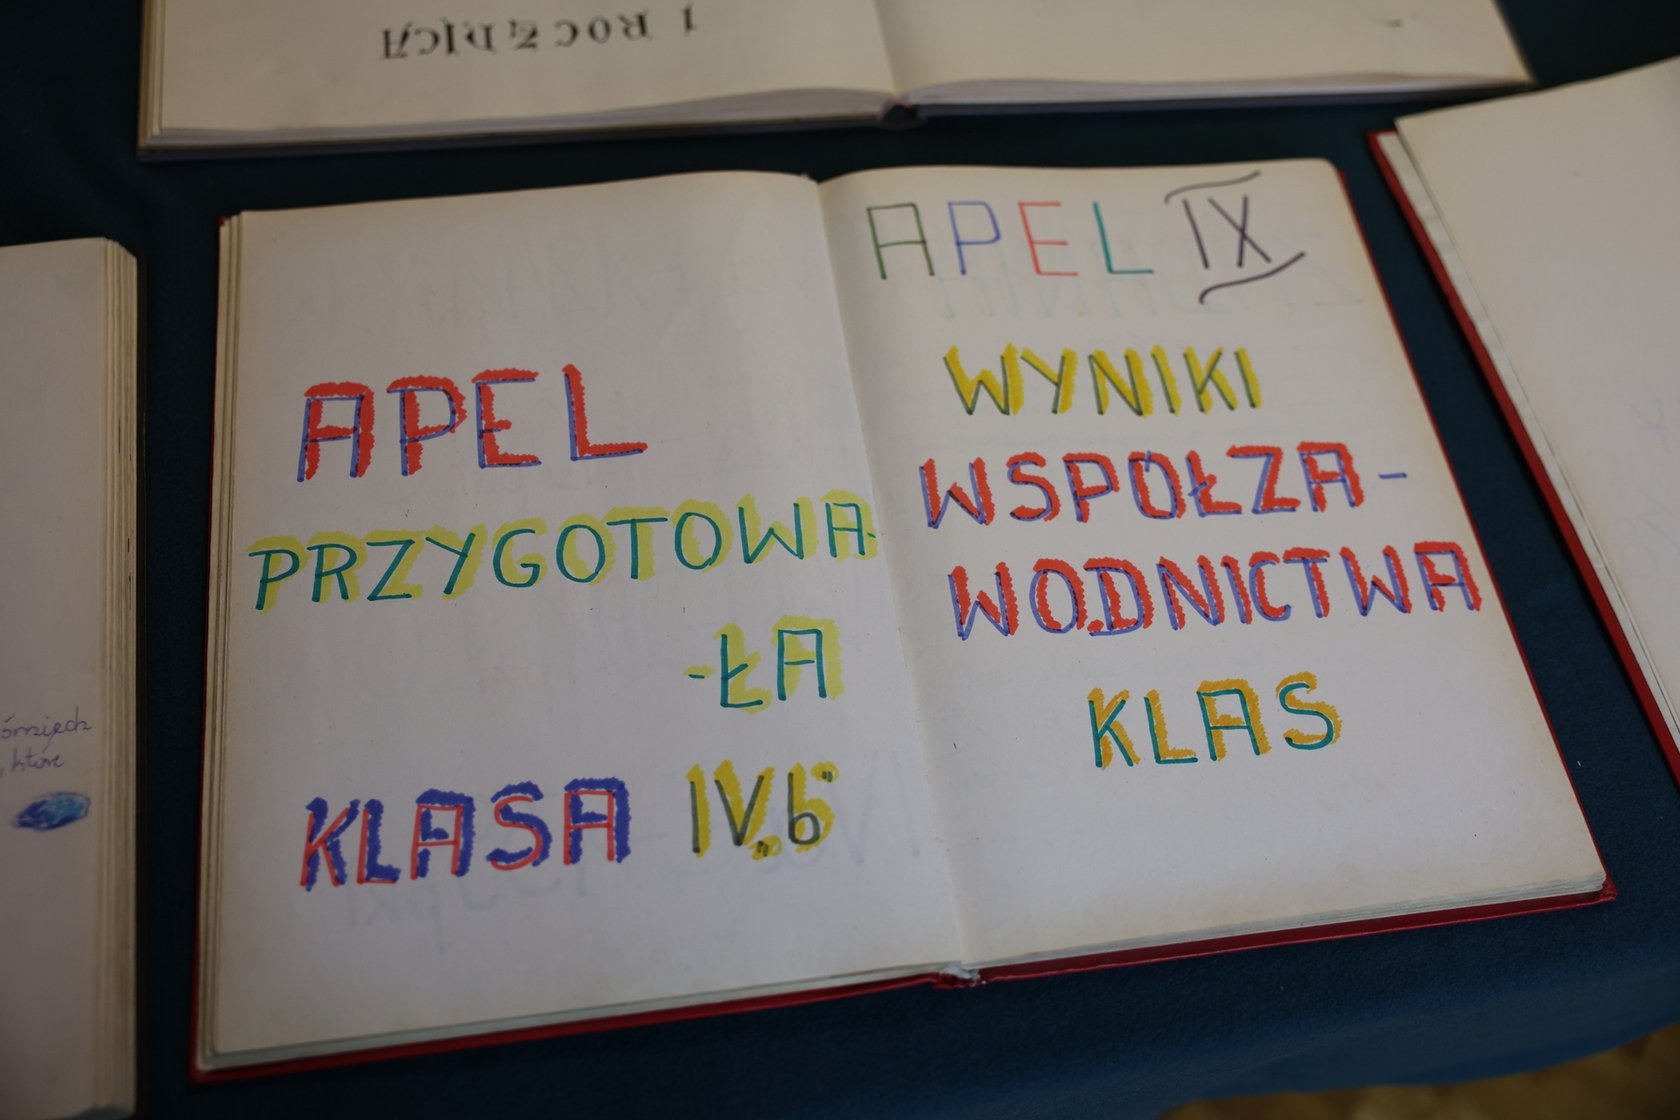 APEL
PRZYGOTOWA-
-ŁA
KLASA IV„b”
APEL IX
WYNIKI
WSPÓŁZA-
WODNICTWA
KLAS
które